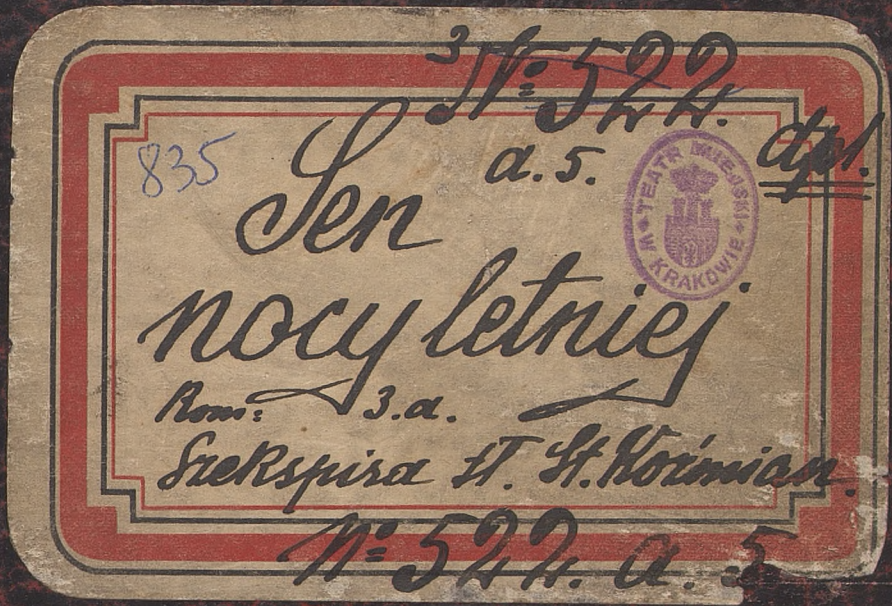 3 No 522.
a. 5.
dpl.
835
TEATR MIEJSKI W KRAKOWIE
Sen
nocy letniej
Kom: 3.a.
Szekspira tł. St. Koźmian.
No 522. a. 5